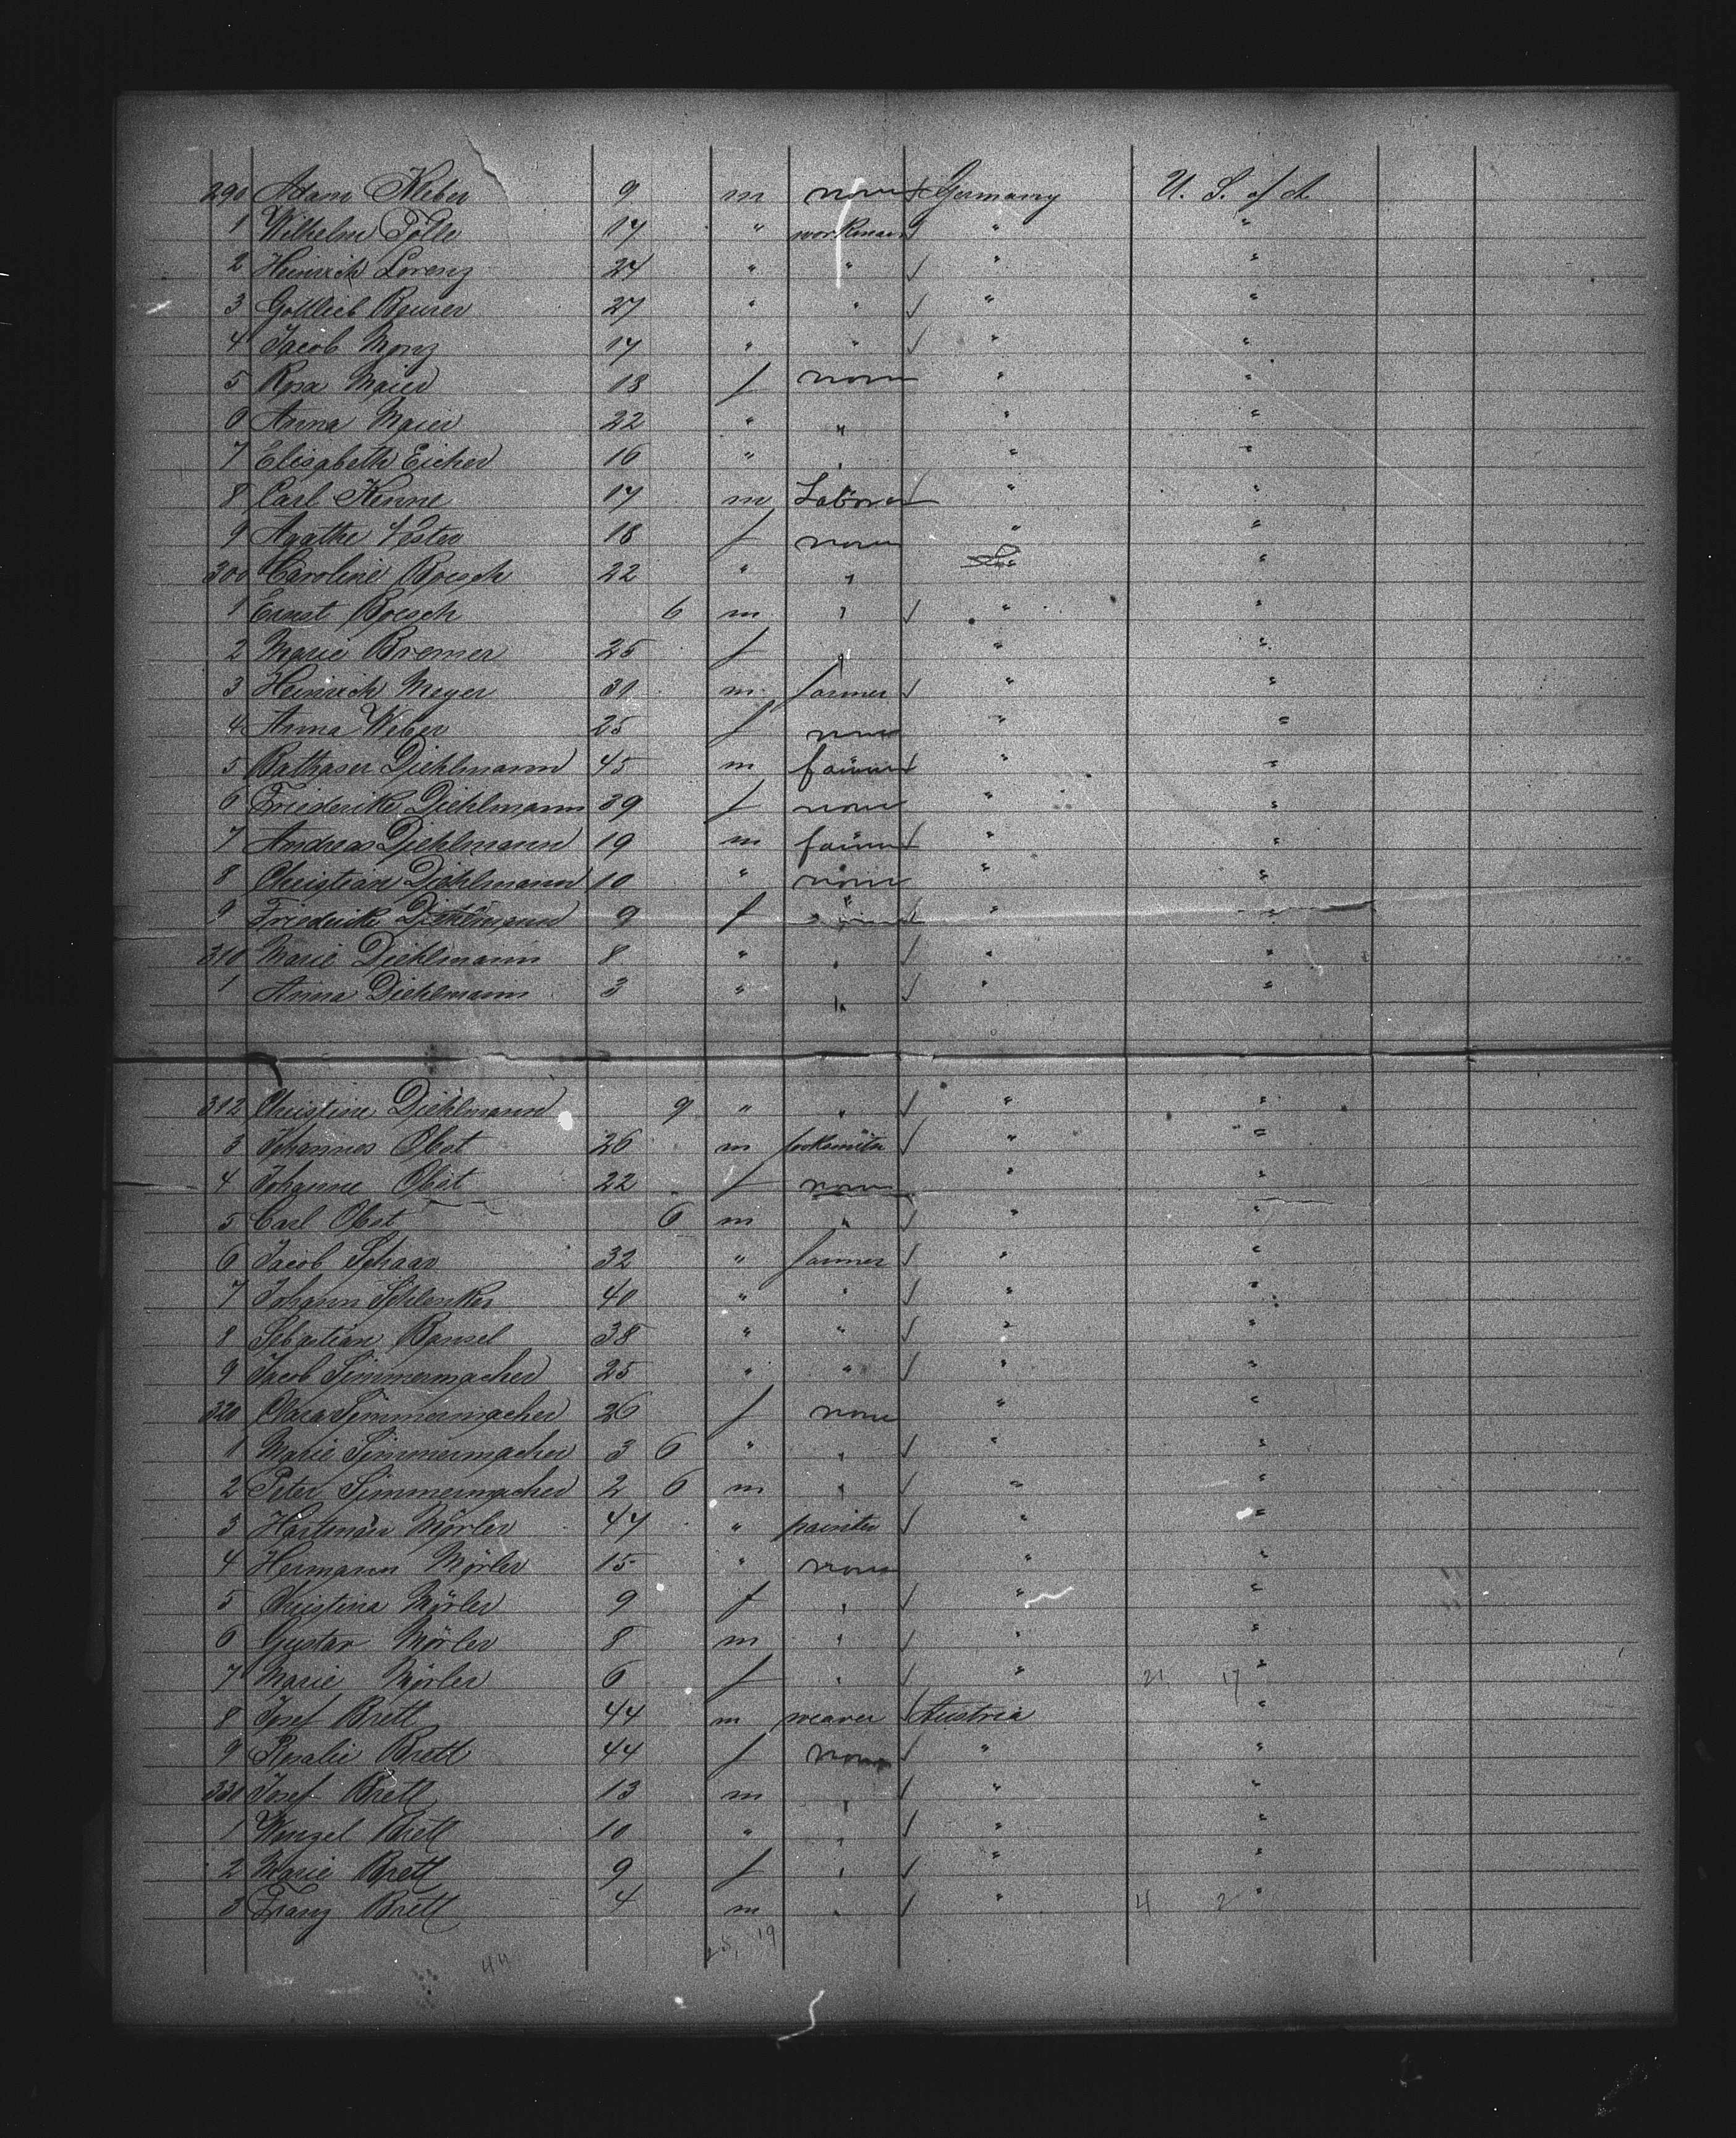 290 Adam Kleber 9 m none Germany U. S. of A.
1 Wilhelm 17 " workman " "
2 Heinrich Lorenz 24 " " " "
3 Gottlieb Beurer 27 " " " "
4 Jacob Monz 17 " " " "
5 Rosa Maier 18 f none " "
6 Anna Maier 22 " " " "
7 Elisabeth Eicher 16 " " " "
8 Carl Kenne 17 m Laborer " "
9 Agathe Vester 18 f none " "
300 Caroline Boesch 22 " " " "
1 Ernst Boesch 6 m " " "
2 Marie Bremer 25 f " " "
3 Heinrich Meyer 31 m farmer " "
4 Anna Weber 25 f none " "
5 Balthaser Diehlmann 45 m farmer " "
6 Friederike Diehlmann 39 f none " "
7 Andreas Diehlmann 19 m farmer " "
8 Christian Diehlmann 10 " none " "
9 Friederike Diehlmann 9 f " " "
310 Marie Diehlmann 8 " " " "
1 Anna Diehlmann 3 " " " "
312 Christine Diehlmann 9 " " " "
3 Johannes Obst 26 m " "
4 Johanne Obst 22 f none " "
5 Carl Obst 6 m " " "
6 Jacob Schaar 32 " farmer " "
7 Johann Schlenker 40 " " " "
8 Sebastian Bansel 38 " " " "
9 Jacob Simmermacher 25 " " " "
320 Clara Simmermacher 26 f none " "
1 Marie Simmermacher 3 6 " " " "
2 Peter Simmermacher 2 6 m " " "
3 Mörler 44 " painter " "
4 Hermann Mörler 15 " none " "
5 Christina Mörler 9 f " " "
6 Gustav Mörler 8 m " " "
7 Marie Mörler 6 f " " 21 17 "
8 Josef Brett 44 m weaver Austria "
9 Rosalie Brett 44 f none " "
330 Josef Brett 13 m " " "
1 Wenzel Brett 10 " " " "
2 Marie Brett 9 f " " "
3 Franz Brett 4 m " " 4 2 "
44 25, 19